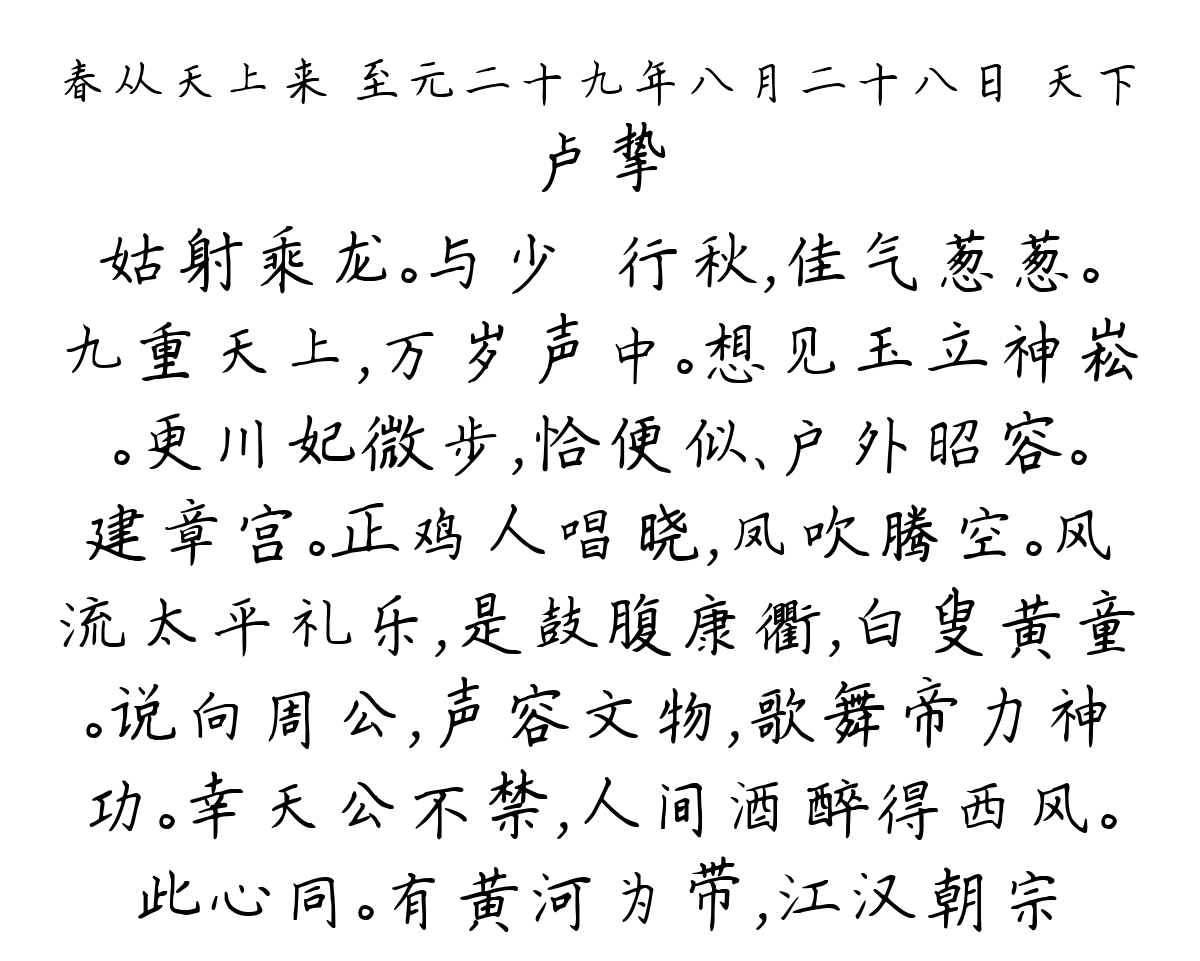 春从天上来 至元二十九年八月二十八日 天下
卢挚
姑射乘龙。与少 行秋,佳气葱葱。
九重天上,万岁声中。想见玉立神崧
。更川妃微步,恰便似、户外昭容。
建章宫。正鸡人唱晓,凤吹腾空。风
流太平礼乐,是鼓腹康衢,白叟黄童
。说向周公,声容文物,歌舞帝力神
功。幸天公不禁,人间酒醉得西风。
此心同。有黄河为带,江汉朝宗